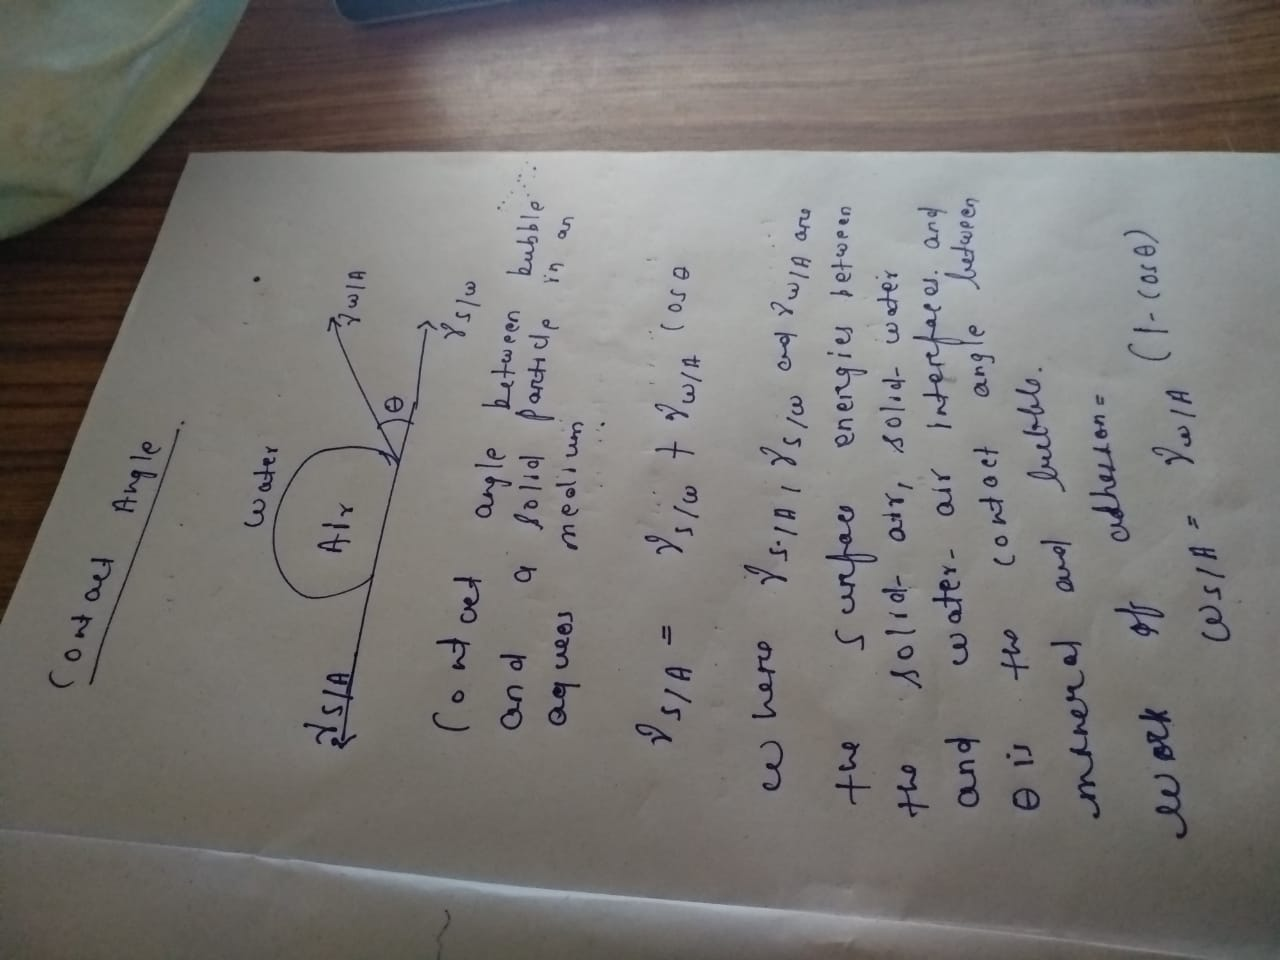 Contact Angle
Water
Air
γS/A
γW/A
θ
γS/W
Contact angle between bubble
and a solid particle in an
aqueos medium
γS/A = γS/W + γW/A COSθ
where γS/A, γS/W and γW/A are
the surface energies between
the solid-air, solid-water
and water-air interfaces. and
θ is the contact angle between
mineral and bubble.
work of adhesion =
WS/A = γW/A (1-COSθ)